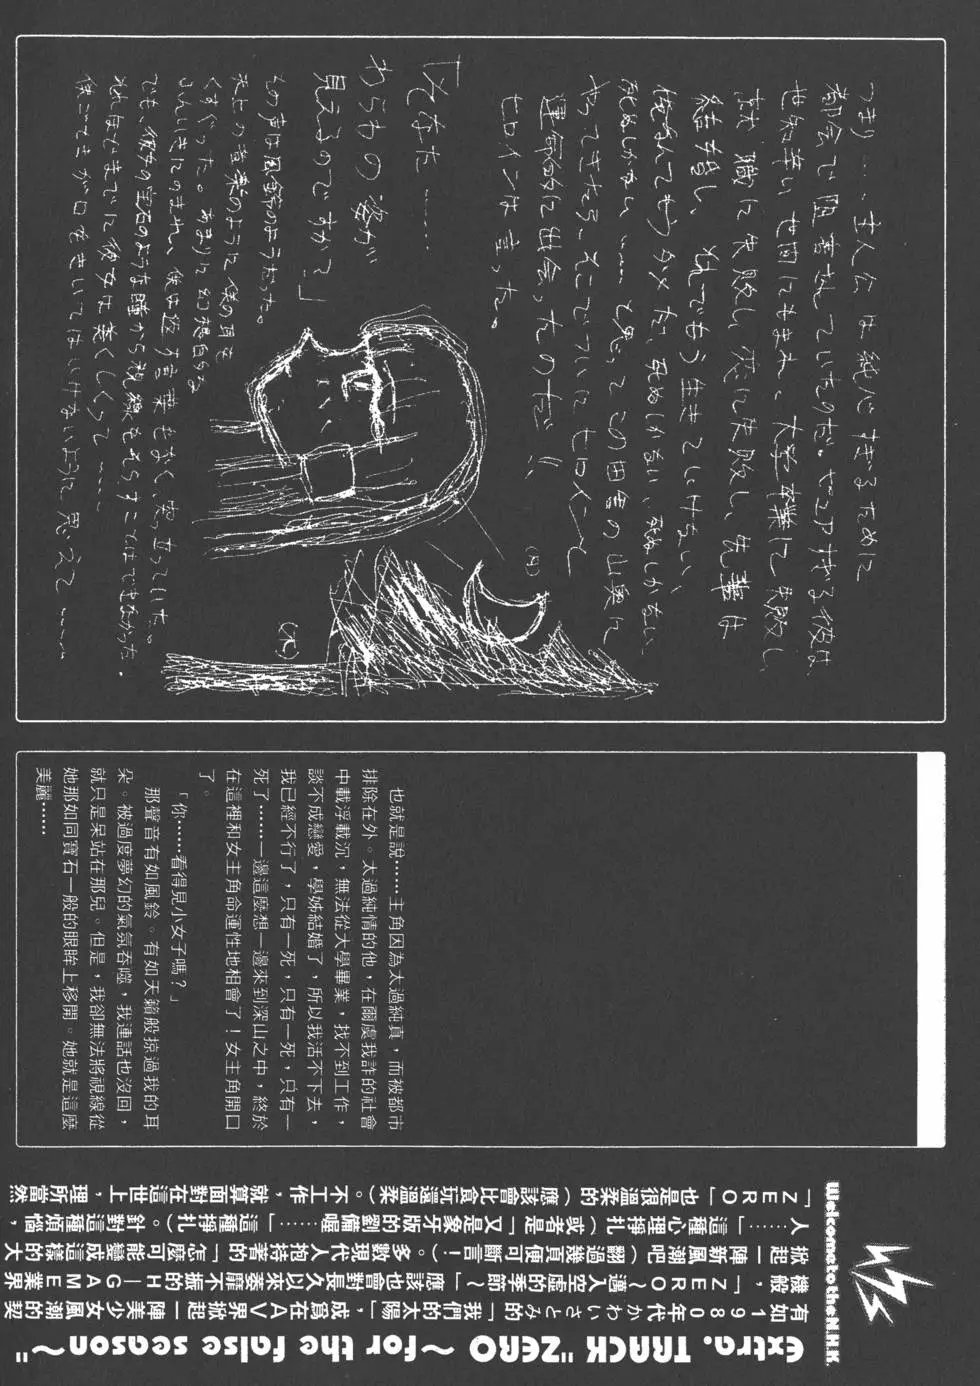 つまり……主人公は純心すぎるために
都会で阻害されていたのだ。ピュアすぎる彼は、
世知辛い世間にもまれ、大学卒業に失敗し、
就職に失敗し、恋に失敗し、先輩は
結婚し、それでもう生きていけない、
俺なんてもうダメだ、死ぬしかない、死ぬしかない、
死ぬしかない……と思ってこの田舎の山奥に
やってきたら、そこでついにヒロインと
運命的に出会ったのだ!!
ヒロインは言った。
「そなた……
わらわの姿が
見えるのですか?」
その声は風鈴のようだった。
天上の音楽のように僕の耳を
くすぐった。あまりに幻想的な
ふんいきにのまれ、僕は返す言葉もなく、突っ立っていた。
でも、彼女の宝石のような瞳から視線をそらすことはできなかった。
それほどまでに彼女は美くしくって……
僕ごときが口をきいてはいけないように思えて……
(月)
(木)
也就是說……主角因為太過純真，而被都市
排除在外。太過純情的他，在爾虞我詐的社會
中載浮載沉，無法從大學畢業，找不到工作，
談不成戀愛，學姊結婚了，所以我活不下去，
我已經不行了，只有一死，只有一死，只有一
死了……一邊這麼想一邊來到深山之中，終於
在這裡和女主角命運性地相會了！女主角開口
了。
「你……看得見小女子嗎？」
那聲音有如風鈴。有如天籟般掠過我的耳
朵。被過度夢幻的氣氛吞噬，我連話也沒回，
就只是呆站在那兒。但是，我卻無法將視線從
她那如同寶石一般的眼眸上移開。她就是這麼
美麗……
Welcome to the N.H.K.
extra. TRACK "ZERO ～for the false season～"
有如1980年代かわいさとみ的「我們的太陽」，成為在AV界掀起一陣美少女風潮的契
機般，「ZERO～邁入空虛的季節～」應該也會對長久以來萎靡不振的H─GAME業界
掀起一陣新風潮吧（翻過幾頁便可斷言！）。多數現代人抱持著的「怎麼可能變成這樣的大
人……」這種心理掙扎（或者是「又是象牙版的劉備喔……」這種掙扎）。針對這種煩惱，
「ZERO」也是很溫柔的（應該會比食玩還溫柔）。不工作，就算面對在這世上，理所當然